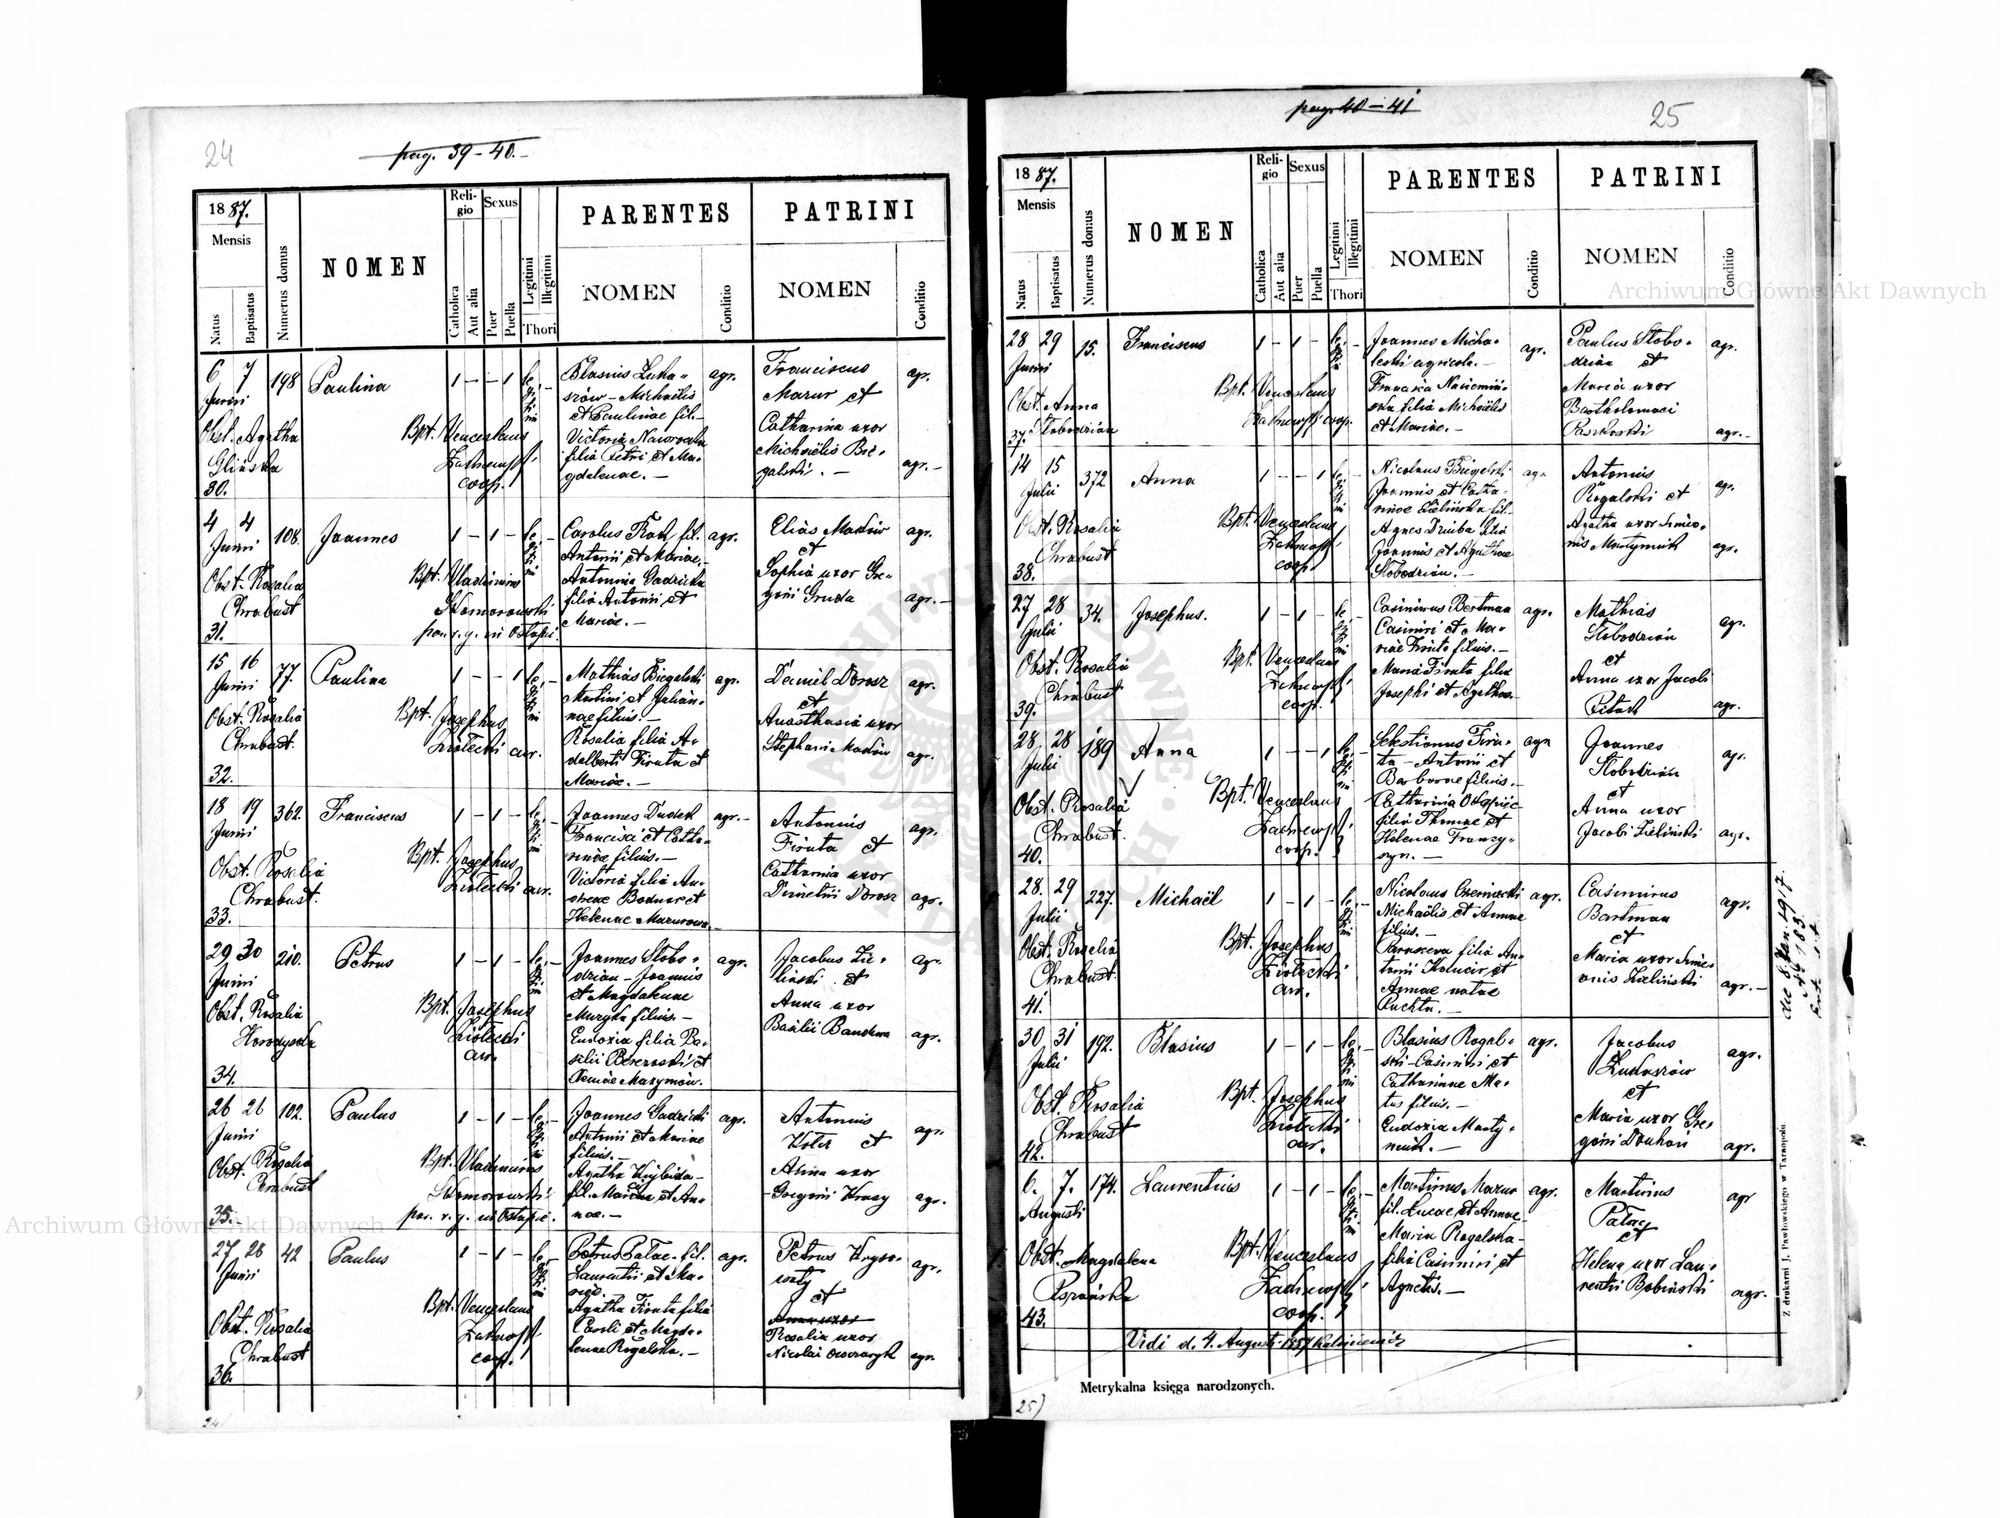 24
pag. 39-40.-
1887.
Mensis
Natus
Baptisatus
Numerus domus
NOMEN
Religio
Catholica
Aut alia
Sexus
Puer
Puella
Legitimi
Illegitimi
Thori
PARENTES
NOMEN
Conditio
PATRINI
NOMEN
Conditio
6 7 198 Paulina 1 - - 1
Junii
Obst. Agatha
Glińska
30.
Bpt. Venceslaus
coop.
Blasius Luka-
szów - Michaëlis
et Paulinae fil.-
Victoria Nawrocka
filia Petri et Ma-
gdalenae. -
agr.
Franciscus
Mazur et
Catharina uxor
Michaëlis Bie-
galski. -
agr.
agr.-
4 4 108. Joannes 1 - 1 -
Junii
Obst. Rosalia
Chrabust
31.
Bpt. Vladimirus
Skomorowski
par. r. g. in Ostapie.
Antonii et Mariae.-
Antonina Gadzicka
filia Antonii et
Mariae. -
agr.
Elias Maków
et
Sophia uxor Gre-
gorii Gruda
agr.
agr.-
15 16 77. Paulina 1 - - 1
Junii
Obst. Rosalia
Chrabust.
32.
Bpt. Josephus
Ziołecki
Mathias Biegalski
Martini et Julian-
nae filius.-
Rosalia filia A-
dalberti Firuta et
Mariae. -
agr.
Daniel Dorosz
et
Anasthasia uxor
Stephani Maków
agr.
agr.
18 19 362. Franciscus 1 - 1 -
Junii
Obst. Rosalia
Chrabust.
33.
Bpt. Josephus
Ziołecki
Joannes Dudek
Francisci et Catha-
rinae filius.-
Victoria filia An-
dreae Bodnar et
Helenae Mazurowa.-
agr.-
Antonius
Firuta et
Catharina uxor
Dimetrii Dorosz
agr.
agr.
29 30 210. Petrus 1 - 1 -
Junii
Obst. Rosalia
Horodyska
34.
Bpt. Josephus
Ziołecki
Joannes Słobo-
dzian - Joannis
et Magdalenae
Muzyka filius.-
Eudoxia filia Ba-
silii Berezowski et
agr.
Jacobus Zie-
liński et
Anna uxor
Basilii Bandura
agr.
agr.
26 26 102. Paulus 1 - 1 -
Junii
Obst. Rosalia
Chrabust
35.
Bpt. Vladimirus
Skomorowski
par. r. g. in Ostapie.-
Joannes Gadzicki
Antonii et Mariae
filius.-
fil. Marini et An-
nae.-
agr.
Antonius
et
Anna uxor
Gregorii Krasy
agr.
agr.
27 28 42 Paulus 1 - 1 -
Junii
Obst. Rosalia
Chrabust
36.
Bpt. Venceslaus
coop.
Petrus Pałac. fil.
Laurentii et Ma-
riae.
Agatha Firuta filia
Caroli et Magda-
lenae Rogalska.-
agr.
Petrus Kryso-
waty
et
Anna uxor
Rosalia uxor
Nicolai Owczaryk
agr.
agr.
24)
25
pag. 40-41
1887.
Mensis
Natus
Baptisatus
Numerus domus
NOMEN
Religio
Catholica
Aut alia
Sexus
Puer
Puella
Legitimi
Illegitimi
Thori
PARENTES
NOMEN
Conditio
PATRINI
NOMEN
Conditio
28 29 15. Franciscus 1 - 1 -
Junii
Obst. Anna
Słobodzian
37.
Bpt. Venceslaus
coop.
Joannes Micha-
lecki agricola.-
filia Michaëlis
et Mariae.-
agr.
Paulus Słobo-
dzian et
Maria uxor
Bartholomaei
Paszkoski
agr.
agr.-
14 15 372 Anna 1 - - 1
Julii
Obst. Rosalia
Chrabust
38.
Bpt. Venceslaus
coop.
Nicolaus Biegalski
Joannis et Catha-
rinae Zielińska fil.-
Agnes Dziuba filia
Joannis et Agathae
Słobodzian.-
agr.
Antonius
Rogalski et
Agatha uxor Simeo-
nis Martyniuk
agr.
agr.
27 28 34. Josephus. 1 - 1 -
Julii
Obst. Rosalia
Chrabust
39.
Bpt. Venceslaus
coop.
Casimirus Bertman
Casimiri et Ma-
riae Firuta filius.-
Maria Firuta filia
Josephi et Agatha.-
agr.
Mathias
Słobodzian
et
Anna uxor Jacobi
agr.
agr.
28 28 189 Anna 1 - - 1
Julii
Obst. Rosalia
Chrabust.
40.
Bpt. Venceslaus
coop.
Sebastianus Firu-
ta - Antonii et
Barbarae filius.-
filia Thomae et
Helenae Franczy-
szyn. -
agr.
Joannes
Słobodzian
et
Anna uxor
Jacobi Zieliński
agr.
agr.
28. 29 227. Michaël 1 - 1 -
Julii
Obst. Rosalia
Chrabust
41.
Bpt. Josephus
Ziołecki
Nicolaus Czerniecki
Michaëlis et Annae
filius.-
Paraskeva filia An-
tonii Kolucir et
Annae natae
Puchta.-
agr.
Casimirus
Bartman
et
Maria uxor Sime-
onis Zieliński
agr.
agr.-
30 31 192. Blasius 1 - 1 -
Julii
Obst. Rosalia
Chrabust
42.
Bpt. Josephus
Ziołecki
Blasius Rogal-
ski - Casimiri et
Catharinae Ma-
tus filius.-
Eudoxia Marty-
niuk.-
agr.
Jacobus
Łukaszów
et
Maria uxor Gre-
gorii Douhań
agr.
agr.
6. 7. 174. Laurentius 1 - 1 -
Augusti
Obst. Magdalena
43.
Bpt. Venceslaus
coop.
Martinus Mazur
fil. Lucae et Annae.-
Maria Rogalska-
filia Casimiri et
Agnetis.-
agr.
Martinus
Pałac
et
Helena uxor Lau-
rentii Babiński
agr
agr.
Vidi d. 4. Augusti 1887
Metrykalna księga narodzonych.
25)
Z drukarni J. Pawłowskiego w Tarnopolu.
Archiwum Główne Akt Dawnych
Archiwum Główne Akt Dawnych